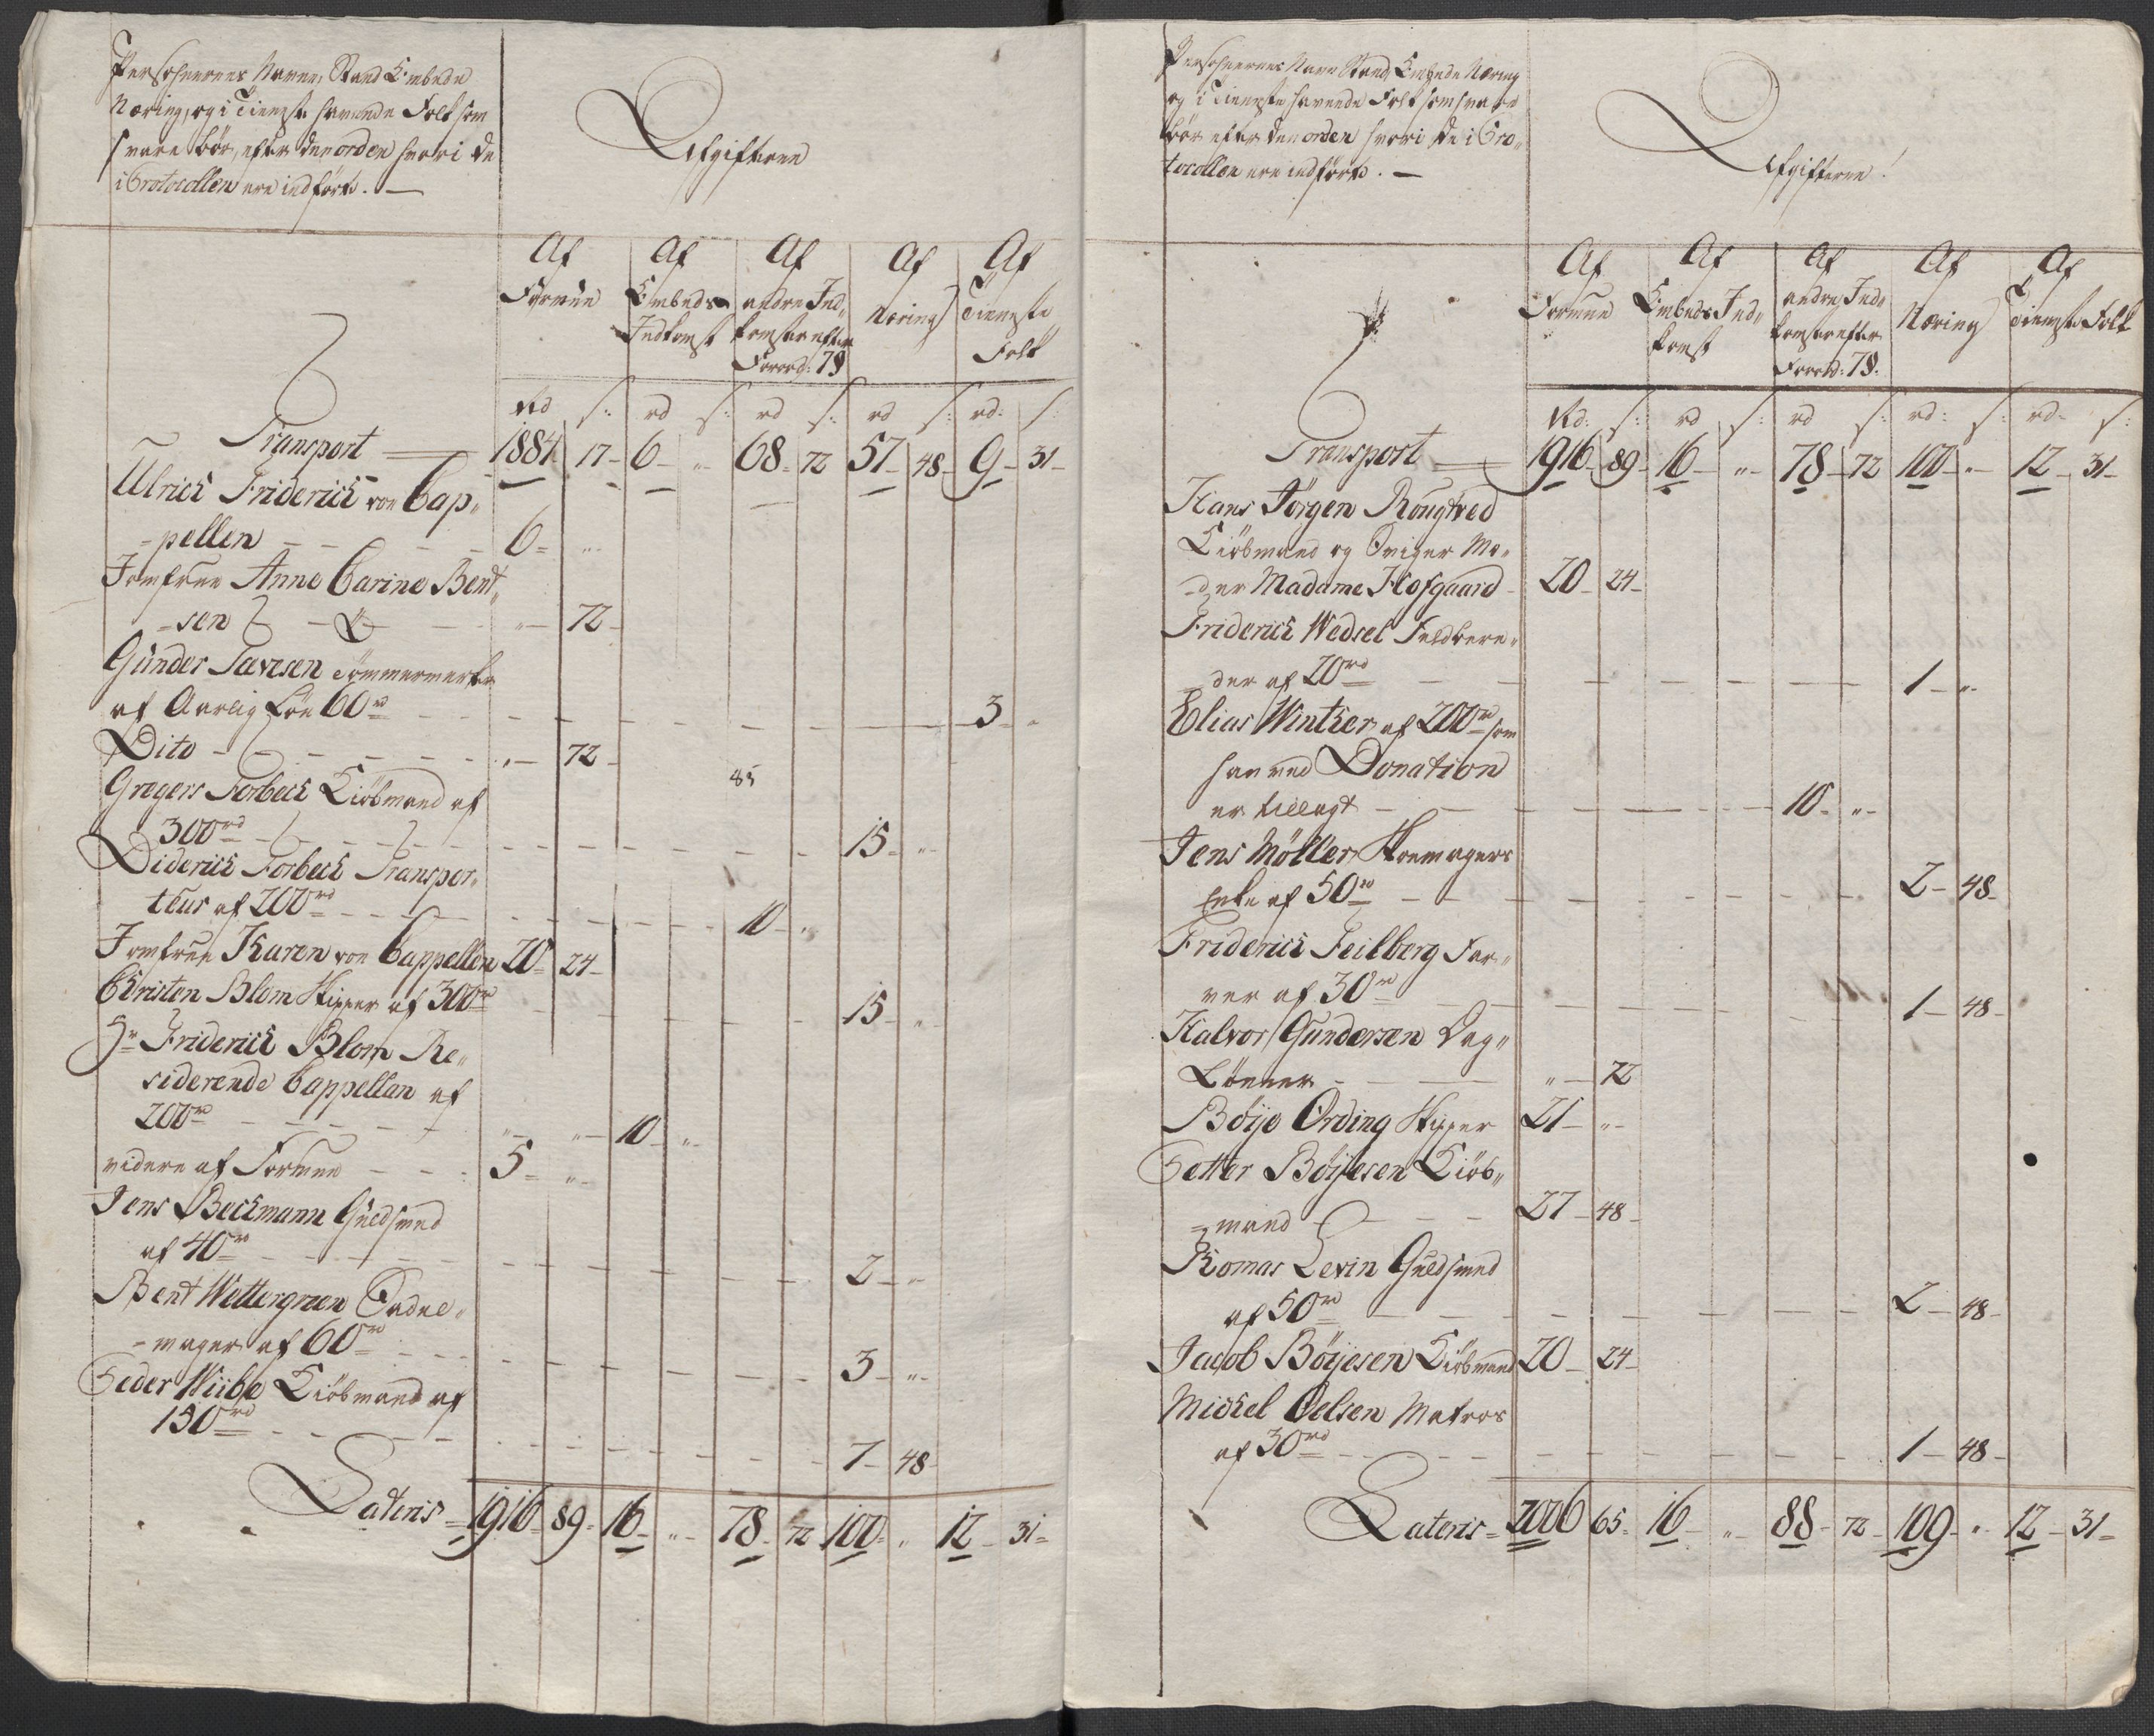 Persohnernes Navne, Stand Embede
Næring, og i Tieneste havende Folk som
svare bør, efter den orden hvori de
i Protocollen ere indførte. —
Afgifterne
Af Formue
Af Embeds Indkomst
Af andre Ind„ komster efter Forord: 79
Af Næring
Af Tieneste Folk
Rd s: rd s: rd s: rd s: rd: s:
Transport 1884 17 6 „ 68 72 57 48 9 31
Ulrich Friderich von Cap„
-pellen 6 „
Jomfrue Anne Carine Bent„
-sen „ 72
Gunder Tavesen Tømmermerker
af Aarlig Løn 60rd 3 „
Dito „ 72
85
Gregers Forbech Kiøbmand af
300rd 15 „
Diderich Forbech Transpor„
teur af 200rd 10 „
Jomfrue Karen von Cappellen 20 24
Christen Blom Skipper af 300rd 15 „
Hr Friderich Blom Re„
siderende Cappellan af
200rd „ „ 10 „
videre af Formue 5 „
Jens Beckmann Guldsmed
af 40rd 2 „
Bent Wettergreen Sadel„
-mager af 60rd 3 „
Peder Wiibe Kiøbmand af
150rd 7 48
Lateris 1916 89 16 „ 78 72 100 „ 12 31
Persohnernes Navn Stand, Embede Næring
og i Tieneste havende Folk som svare
bør efter den orden hvori de i Pro„
tocollen ere indførte. —
Afgifterne
Af Formue
Af Embeds Ind„ komst
Af andre Ind„ komster efter Forord: 79.
Af Næring
Af Tieneste Folk
Rd: s: rd s: rd s: rd: s: rd: s:
Transport 1916 89 16 „ 78 72 100 „ 12 31
Hans Jørgen Rougtved
Kiøbmand og Sviger Mo„
-der Madame Hofgaard 20 24
Friderich Wedsel Feldbere„
der af 20rd 1 „
Elias Winther af 200rd som
han ved Donation
er tillagt 10 „
Jens Møller Skomagers
Enke af 50rd 2 48
Friderich Feilberg Far„
ver af 30rd 1 48
Halvor Gundersen Dag„
Lønner „ 72
Bøije Ording Skipper 21 „
Petter Bøijesen Kiøb„
-mand 27 48
Thomas Levin Guldsmed
af 50rd 2 48
Jacob Bøijesen Kiøbmand 20 24
Michel Oelsen Matros
af 30rd 1 48
Lateris 2006 65 16 „ 88 72 109 „ 12 31